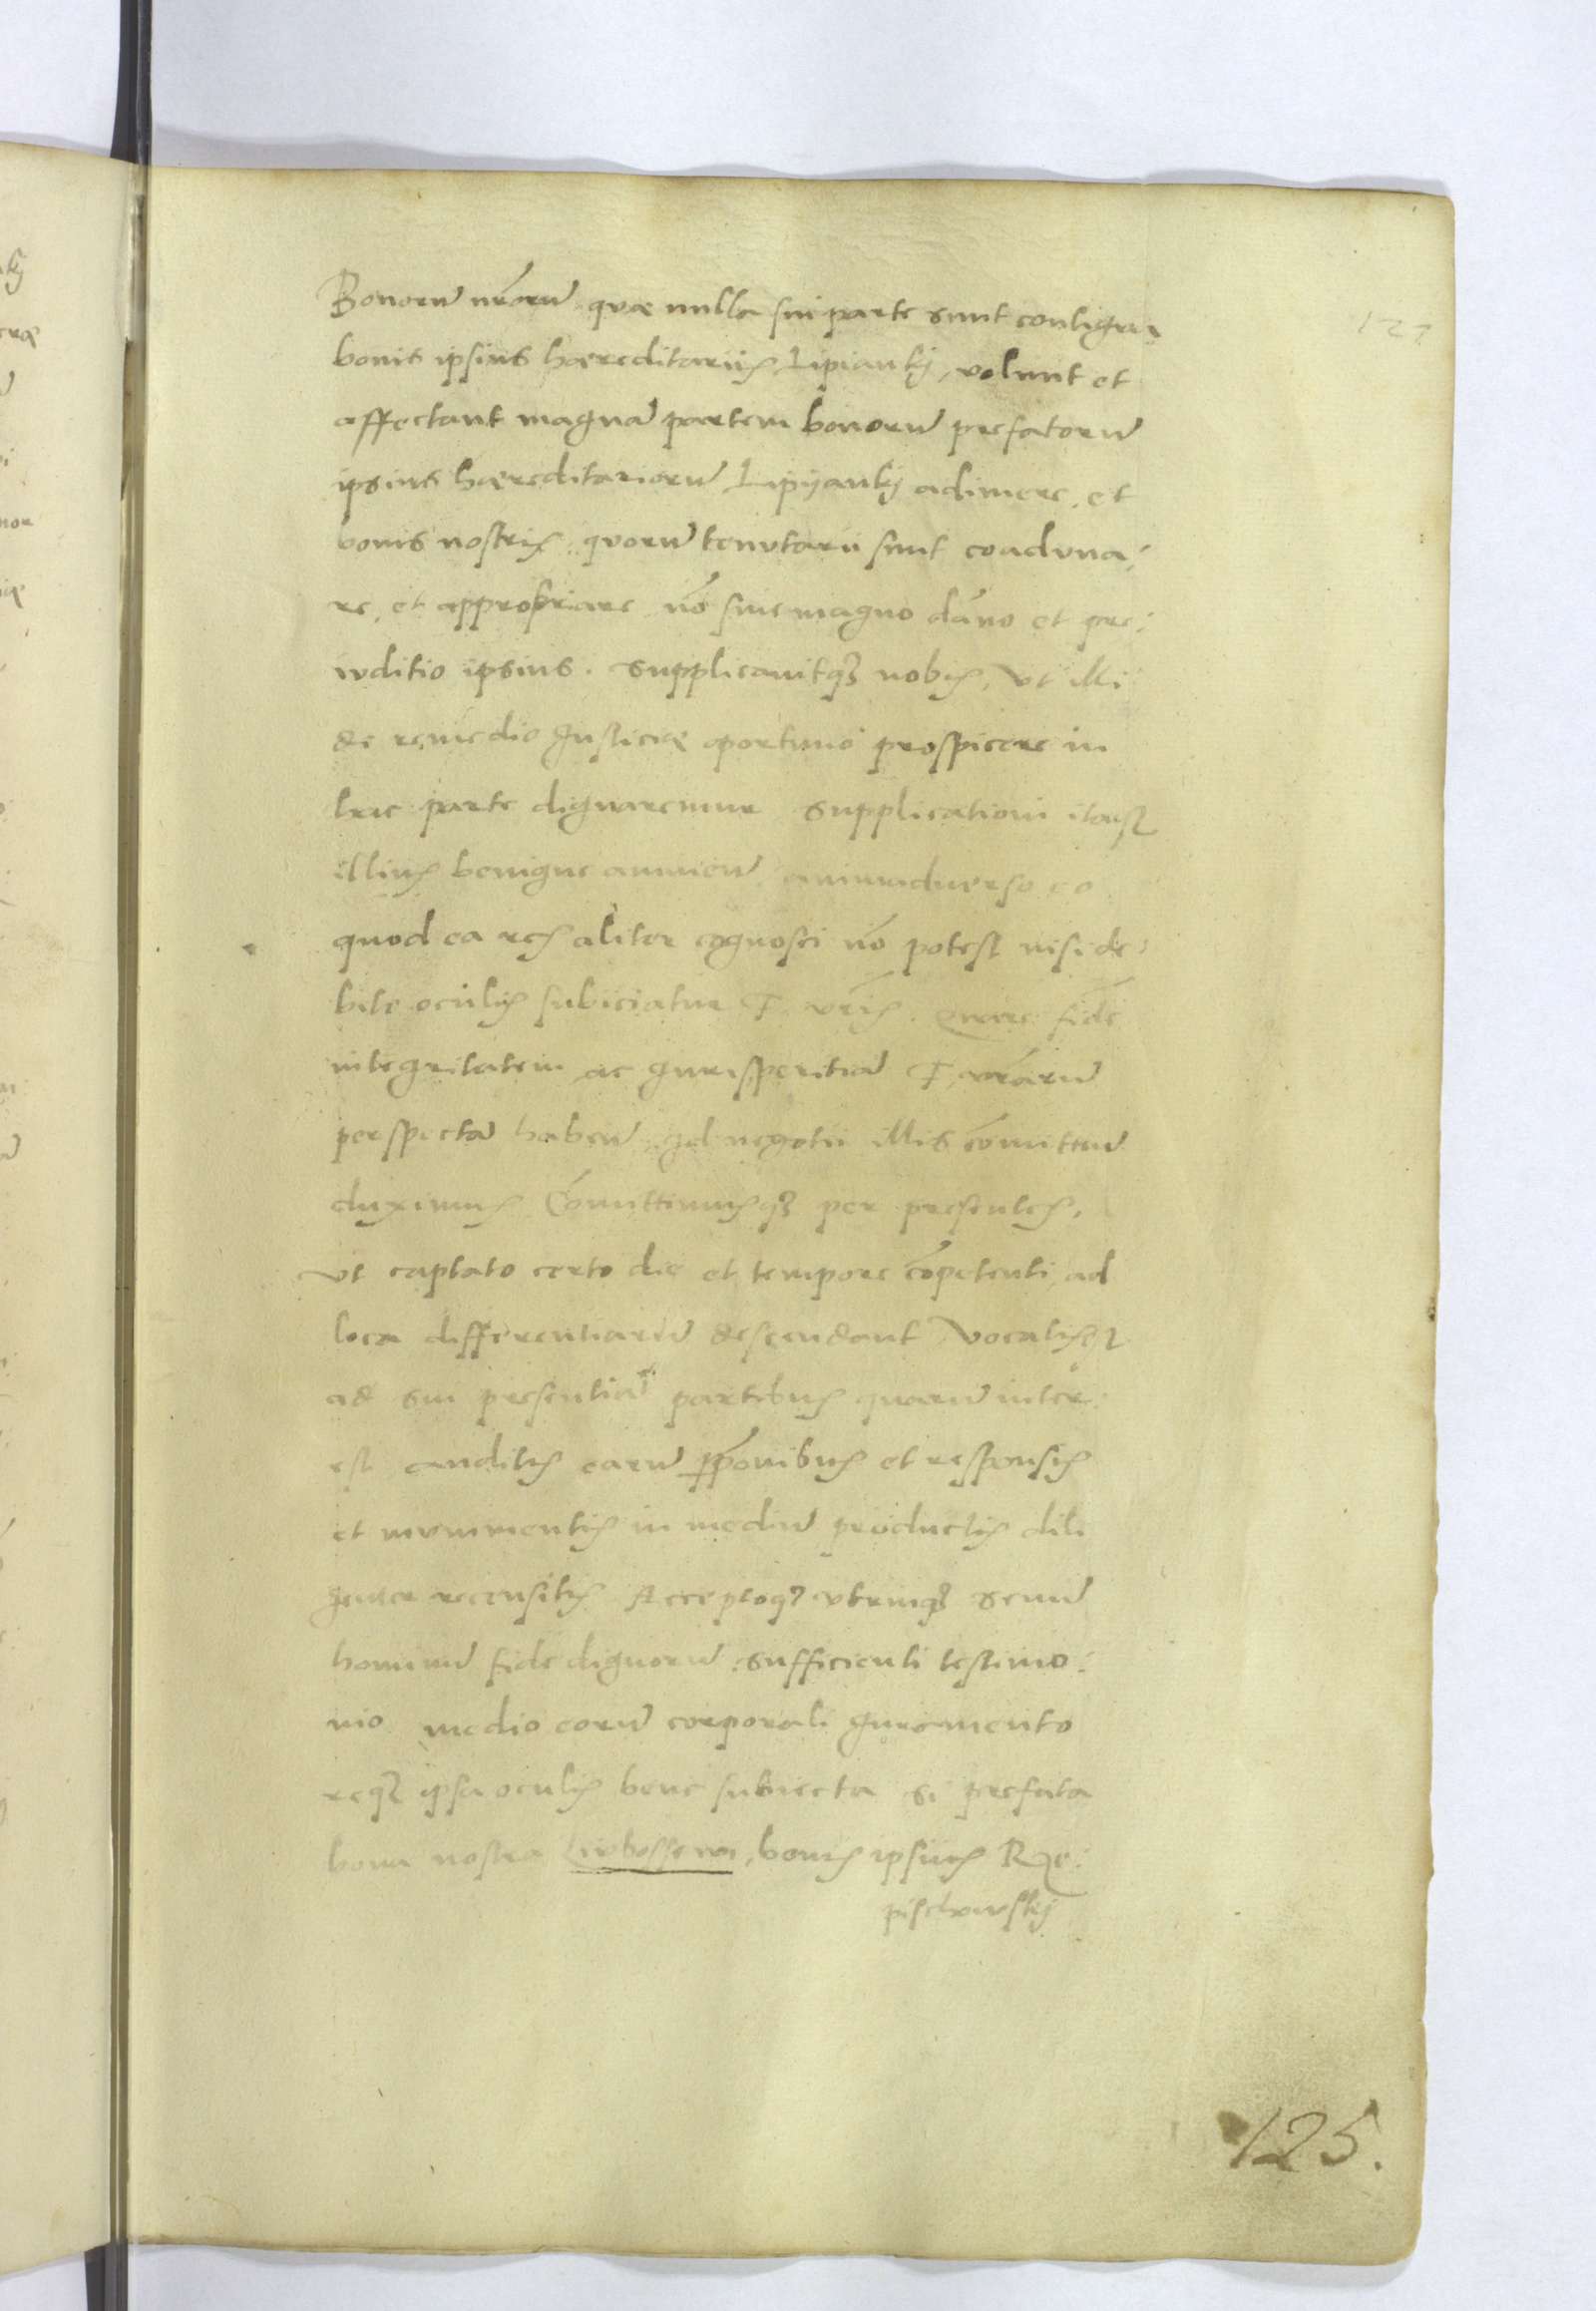 127
Bonorũ nrõrũ quæ nulla sui parte sunt contigua
bonis ipsius hæreditariis Lipianky, volunt et
affectant magnã partem bonorũ prefatorũ
ipsius hæreditariorũ Lipiyanky adimere, et
bonis nostris quorũ tenutarii sunt coaduna:
re, et appropriare nõ sine magno dãno et pre:
iuditio ipsius. Supplicauitqȝ nobis, vt illi
de remedio Justiciæ oportuno prospicere in
hac parte dignaremur Supplicationi itaqȝ
illius benigne annuen̄ animaduerso eo
quod ea res aliter cognosci nõ potest nisi de:
bite oculis subiiciatur F. vr̃is. Quare fidẽ
integritatem ac Jurisperitiã F. vrãrũ
perspectã haben̄ id negotii illis cõmitten̄
duximus Cõmittimusqȝ per presentes,
vt captato certo die et tempore cõpetenti ad
loca differentiarũ descendant Vocatisqȝ
ad sui presentiã partibus quarũ inter:
est auditis earũ ꝓpõnibus et responsis
et munimentis in mediũ productis dili
genter recensitis Acceptoqȝ vtrinqȝ senũ
hominũ fide dignorũ sufficienti testimo:
nio medio eorũ corporali Juramento
reqȝ ipsa oculis bene subiecta si prefata
bona nostra bonis ipsius Rze:
pischowsky
125.